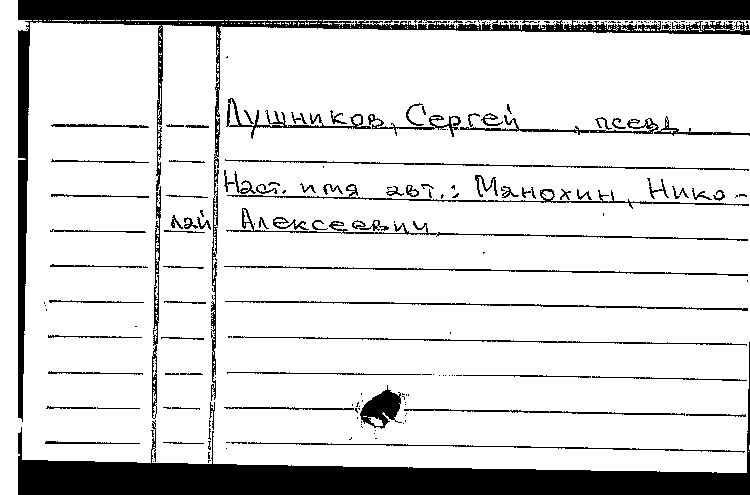 Лушников, Сергей , псевд.
Наст. имя авт.: Манохин, Нико-
лай Алексеевич.